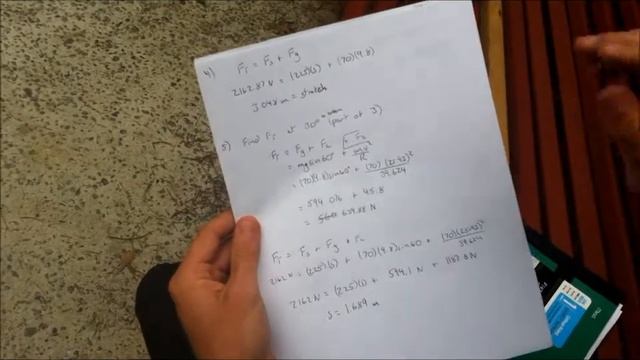 4) F_T = F_s + F_g
2162.87 N = (225)(s) + (70)(9.8)
3.048 m = stretch
5) Find F_T at 30° (part of 3)
F_T = F_g + F_c
= mg sin60° + mv²/R
= (70)(9.8) sin60° + (70)(25.42)²/39.624
= 594.016 + 45.8
= 639.88 N
F_T = F_s + F_g + F_c
2162 N = (225)(s) + (70)(9.8) sin60 + (70)(25.42)²/39.624
2162 N = (225)(s) + 594.1 N + 1187.8 N
s = 1.689 m